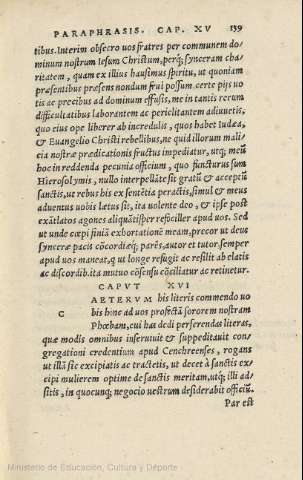 PARAPHRASIS. CAP. XV 139
tibus. Interim obsecro uos fratres per communem do-
minum nostrum Iesum Christum, perq; synceram cha-
ritatem, quam ex illius hausimus spiritu, ut quoniam
præsentibus præsens nondum frui possum, certe pijs uo
tis ac precibus ad dominum effusis, me in tantis rerum
difficultatibus laborantem ac periclitantem adiuuetis,
quo eius ope liberer ab incredulis, quos habet Iudæa,
& Euangelio Christi rebelles, ne quid illorum mali-
cia nostræ prædicationis fructus impediatur, utq; meū
hoc in reddenda pecunia officium, quo functurus sum
Hierosolymis, nullo interpellāte sit gratū & acceptū
sanctis, ut rebus his ex sentētia peractis, simul & meus
aduentus uobis lætus sit, ita uolente deo, & ipse post
exātlatos agones aliquātisper refociller apud uos. Sed
ut unde cœpi finiā exhortationē meam, precor ut deus
synceræ pacis cōcordiæq; parēs, autor et tutor, semper
apud uos maneat, q ut longe refugit ac resilit ab elatis
ac discordib. ita mutuo cōsensu cōciliatur ac retinetur.
CAPVT XVI
C AETERVM his literis commendo uo
bis hinc ad uos profectā sororem nostram
Phœbam, cui has dedi perferendas literas,
quæ modis omnibus inseruit & suppeditauit con-
gregationi credentium apud Cenchreenses, rogans
ut illā sic excipiatis ac tractetis, ut decet à sanctis ex-
cipi mulierem optime de sanctis meritam, utq; illi ad-
sitis, in quocunq; negocio uestrum desiderabit officiū.
Par est
Ministerio de Educación, Cultura y Deporte